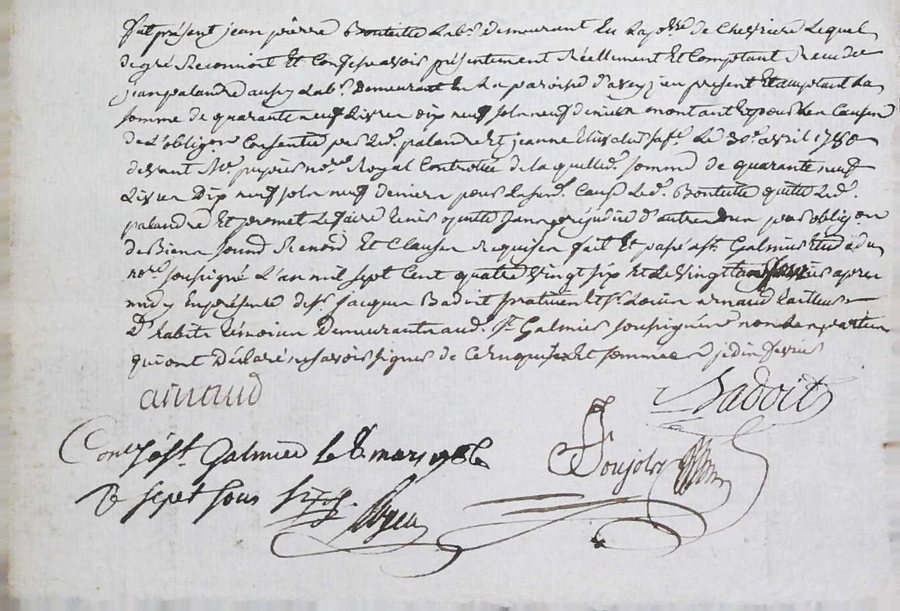 fut présent jean pierre Bonteille Labr. demeurant en La psse. de Chevriere Lequel
de gré Reconnoit Et Confesse avoir présentement Réellement Et Comptant Receu de
jean palandre aussy Labr. demeurant en La paroisse d'aveyz en present Et acceptant La
somme de quarante neuf Livres dix neuf sols neuf deniers montant Et pour Les Causes
de L'obligon. Consentie par Led. palandre Et jeanne sa fe. Le 30e. avril 1780
devant Me. nore. Royal Controllée de laquelle d. somme de quarante neuf
Livres Dix neuf sols neuf deniers pour Le sud. Cause Led. Bonteille quitte Led.
palandre Et promet Le faire tenir quitte sans préjudice d'autres dus par obligon
de Biens soumd Renond Et Clauses Requises fait Et passé a St. Galmier Etude du
nore. soussigné L'an mil sept Cent quatre vingt six Et Le vingt apres
midy En présence de Sr. jacques Badoit praticien Et Sr. Louis arnaud tailleur
D'habits témoins Demeurants aud. St. Galmier soussignés non Les parties
qui ont Déclaré ne savoir signer de Ce Enquises Et sommées
arnaud
Badoit
Conlé. à St. Galmier le 8 mars 1786
R sept sous six d.
Poujols